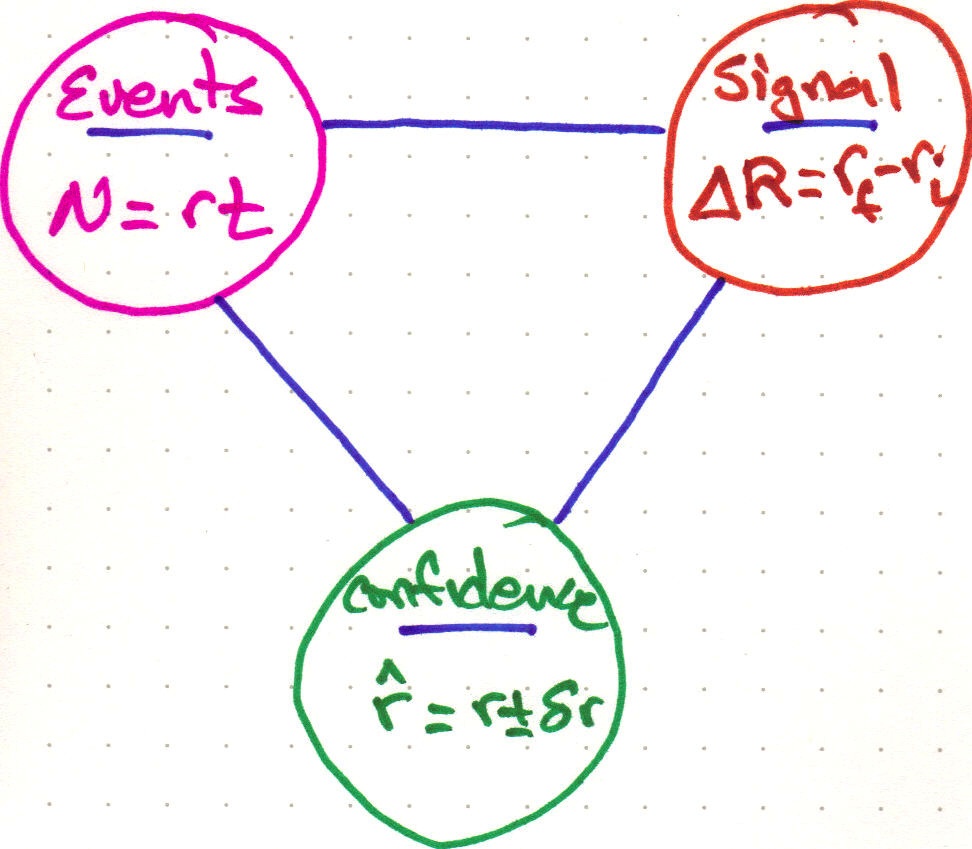 Events
N = rt
Signal
ΔR = r_f - r_i
confidence
r̂ = r ± δr